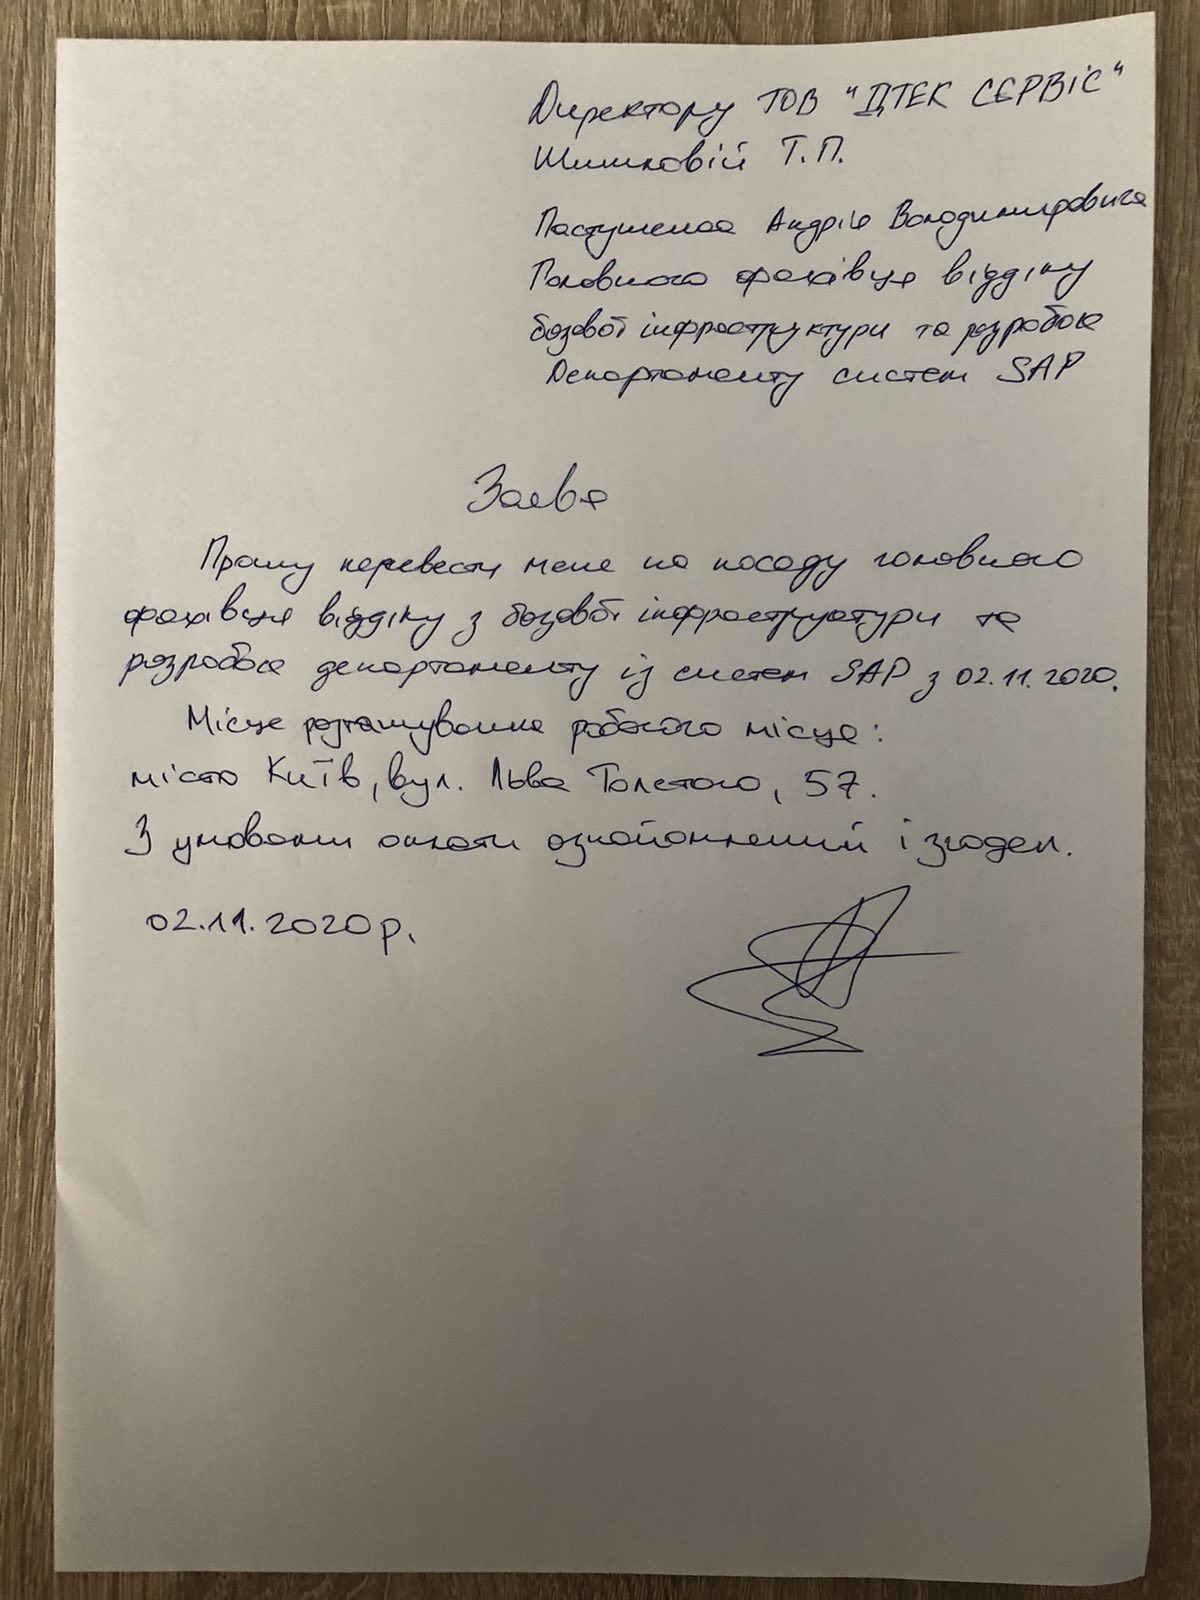 Директору ТОВ "ДТЕК СЕРВІС"
Шишковій Т.П.
Пастушенка Андрія Володимировича
Головного фахівця відділу
базової інфраструктури та розробок
Департаменту систем SAP
Заява
Прошу перевести мене на посаду головного
фахівця відділу з базової інфраструктури та
розробок департаменту із систем SAP з 02.11.2020.
Місце розташування робочого місця:
місто Київ, вул. Льва Толстого, 57.
З умовами оплати ознайомлений і згоден.
02.11.2020р.